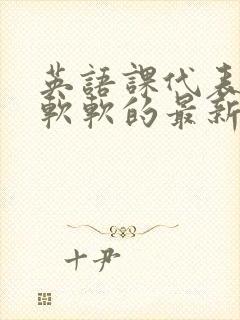 英語課代表
軟軟的最新
十尹